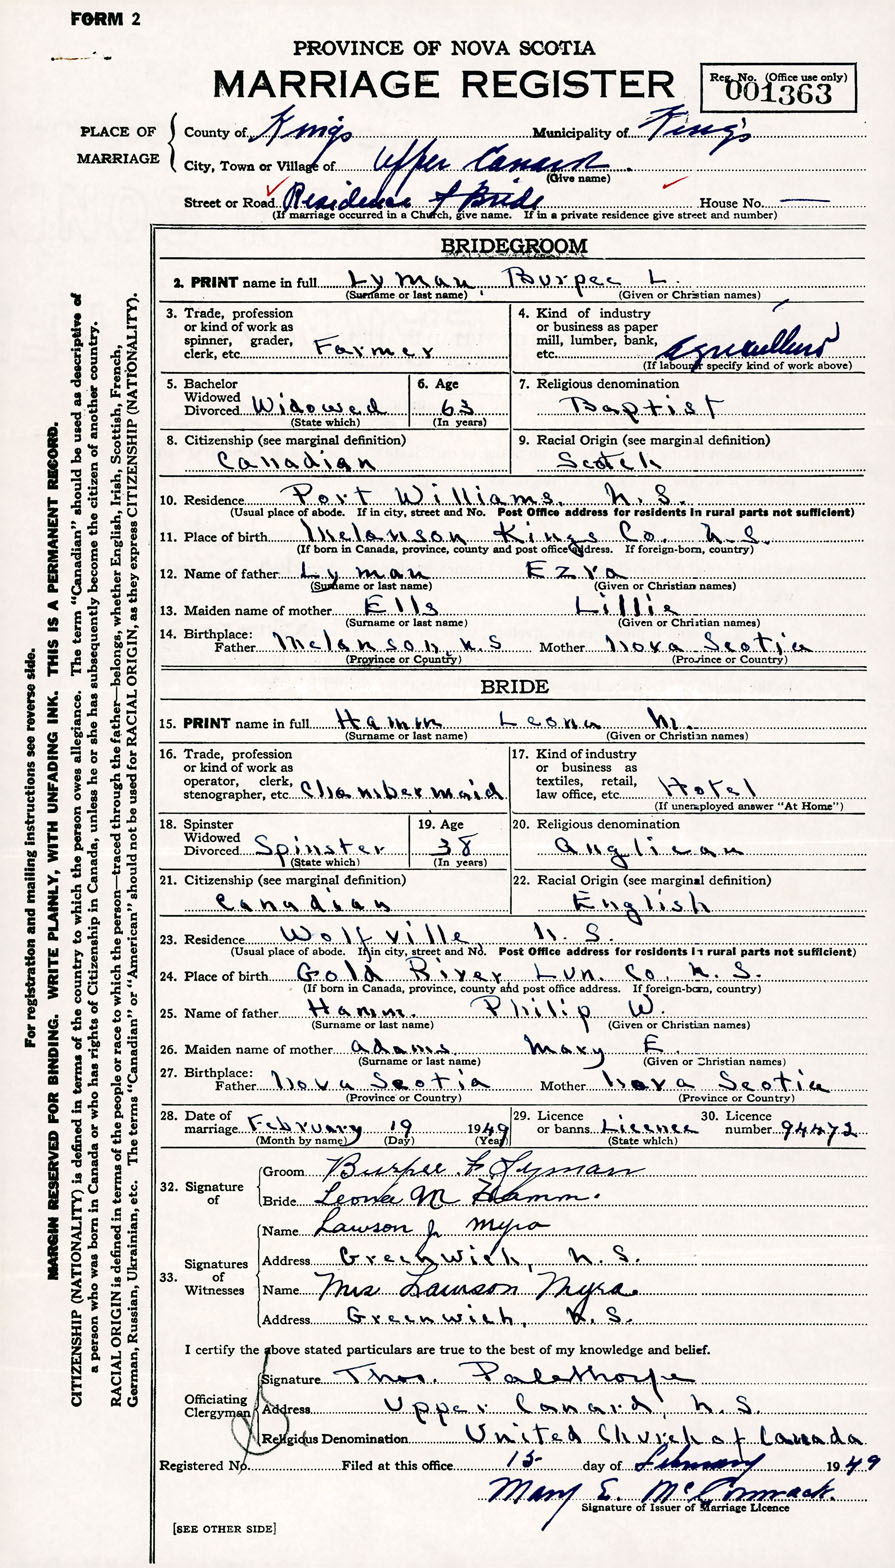 FORM 2
PROVINCE OF NOVA SCOTIA
MARRIAGE REGISTER
Reg. No. (Office use only)
001363
PLACE OF MARRIAGE
County of Kings Municipality of Kings
City, Town or Village of Upper Canard
(Give name)
Street or Road Residence of Bride House No. —
(If marriage occurred in a Church, give name. If in a private residence give street and number)
BRIDEGROOM
2. PRINT name in full Lyman, Burpee L.
(Surname or last name) (Given or Christian names)
3. Trade, profession or kind of work as spinner, grader, clerk, etc. Farmer
4. Kind of industry or business as paper mill, lumber, bank, etc. Agriculture
(If labourer specify kind of work above)
5. Bachelor Widowed Divorced Widowed
(State which)
6. Age 63
(In years)
7. Religious denomination
Baptist
8. Citizenship (see marginal definition)
Canadian
9. Racial Origin (see marginal definition)
Scotch
10. Residence Port Williams, N.S.
(Usual place of abode. If in city, street and No. Post Office address for residents in rural parts not sufficient)
11. Place of birth Melanson Kings Co. N.S.
(If born in Canada, province, county and post office address. If foreign-born, country)
12. Name of father Lyman Ezra
(Surname or last name) (Given or Christian names)
13. Maiden name of mother Ells Lillie
(Surname or last name) (Given or Christian names)
14. Birthplace:
Father Melanson, N.S Mother Nova Scotia
(Province or Country) (Province or Country)
BRIDE
15. PRINT name in full Hamm Leona M.
(Surname or last name) (Given or Christian names)
16. Trade, profession or kind of work as operator, clerk, stenographer, etc. Chambermaid
17. Kind of industry or business as textiles, retail, law office, etc. Hotel
(If unemployed answer "At Home")
18. Spinster Widowed Divorced Spinster
(State which)
19. Age 38
(In years)
20. Religious denomination
Anglican
21. Citizenship (see marginal definition)
Canadian
22. Racial Origin (see marginal definition)
English
23. Residence Wolfville N.S.
(Usual place of abode. If in city, street and No. Post Office address for residents in rural parts not sufficient)
24. Place of birth Gold River, Lun. Co. N.S.
(If born in Canada, province, county and post office address. If foreign-born, country)
25. Name of father Hamm. Philip W.
(Surname or last name) (Given or Christian names)
26. Maiden name of mother Adams Mary E.
(Surname or last name) (Given or Christian names)
27. Birthplace:
Father Nova Scotia Mother Nova Scotia
(Province or Country) (Province or Country)
28. Date of marriage February 19 1949
(Month by name) (Day) (Year)
29. Licence or banns Licence
(State which)
30. Licence number 94472
32. Signature of
Groom Burpee L Lyman
Bride Leona M Hamm.
33. Signatures of Witnesses
Name Lawson J. Myra
Address Greenwich, N.S.
Name Mrs Lawson Myra.
Address Greenwich, N.S.
I certify the above stated particulars are true to the best of my knowledge and belief.
Officiating Clergyman
Signature Thos. Palethorpe
Address Upper Canard, N.S.
Religious Denomination United Church of Canada
Registered No. Filed at this office 15 day of February 1949
Mary E. McCormack.
Signature of Issuer of Marriage Licence
[SEE OTHER SIDE]
For registration and mailing instructions see reverse side.
MARGIN RESERVED FOR BINDING. WRITE PLAINLY, WITH UNFADING INK. THIS IS A PERMANENT RECORD.
CITIZENSHIP (NATIONALITY) is defined in terms of the country to which the person owes allegiance. The term "Canadian" should be used as descriptive of
a person who was born in Canada or who has rights of Citizenship in Canada, unless he or she has subsequently become the citizen of another country.
RACIAL ORIGIN is defined in terms of the people or race to which the person—traced through the father—belongs, whether English, Irish, Scottish, French,
German, Russian, Ukrainian, etc. The terms "Canadian" or "American" should not be used for RACIAL ORIGIN, as they express CITIZENSHIP (NATIONALITY).